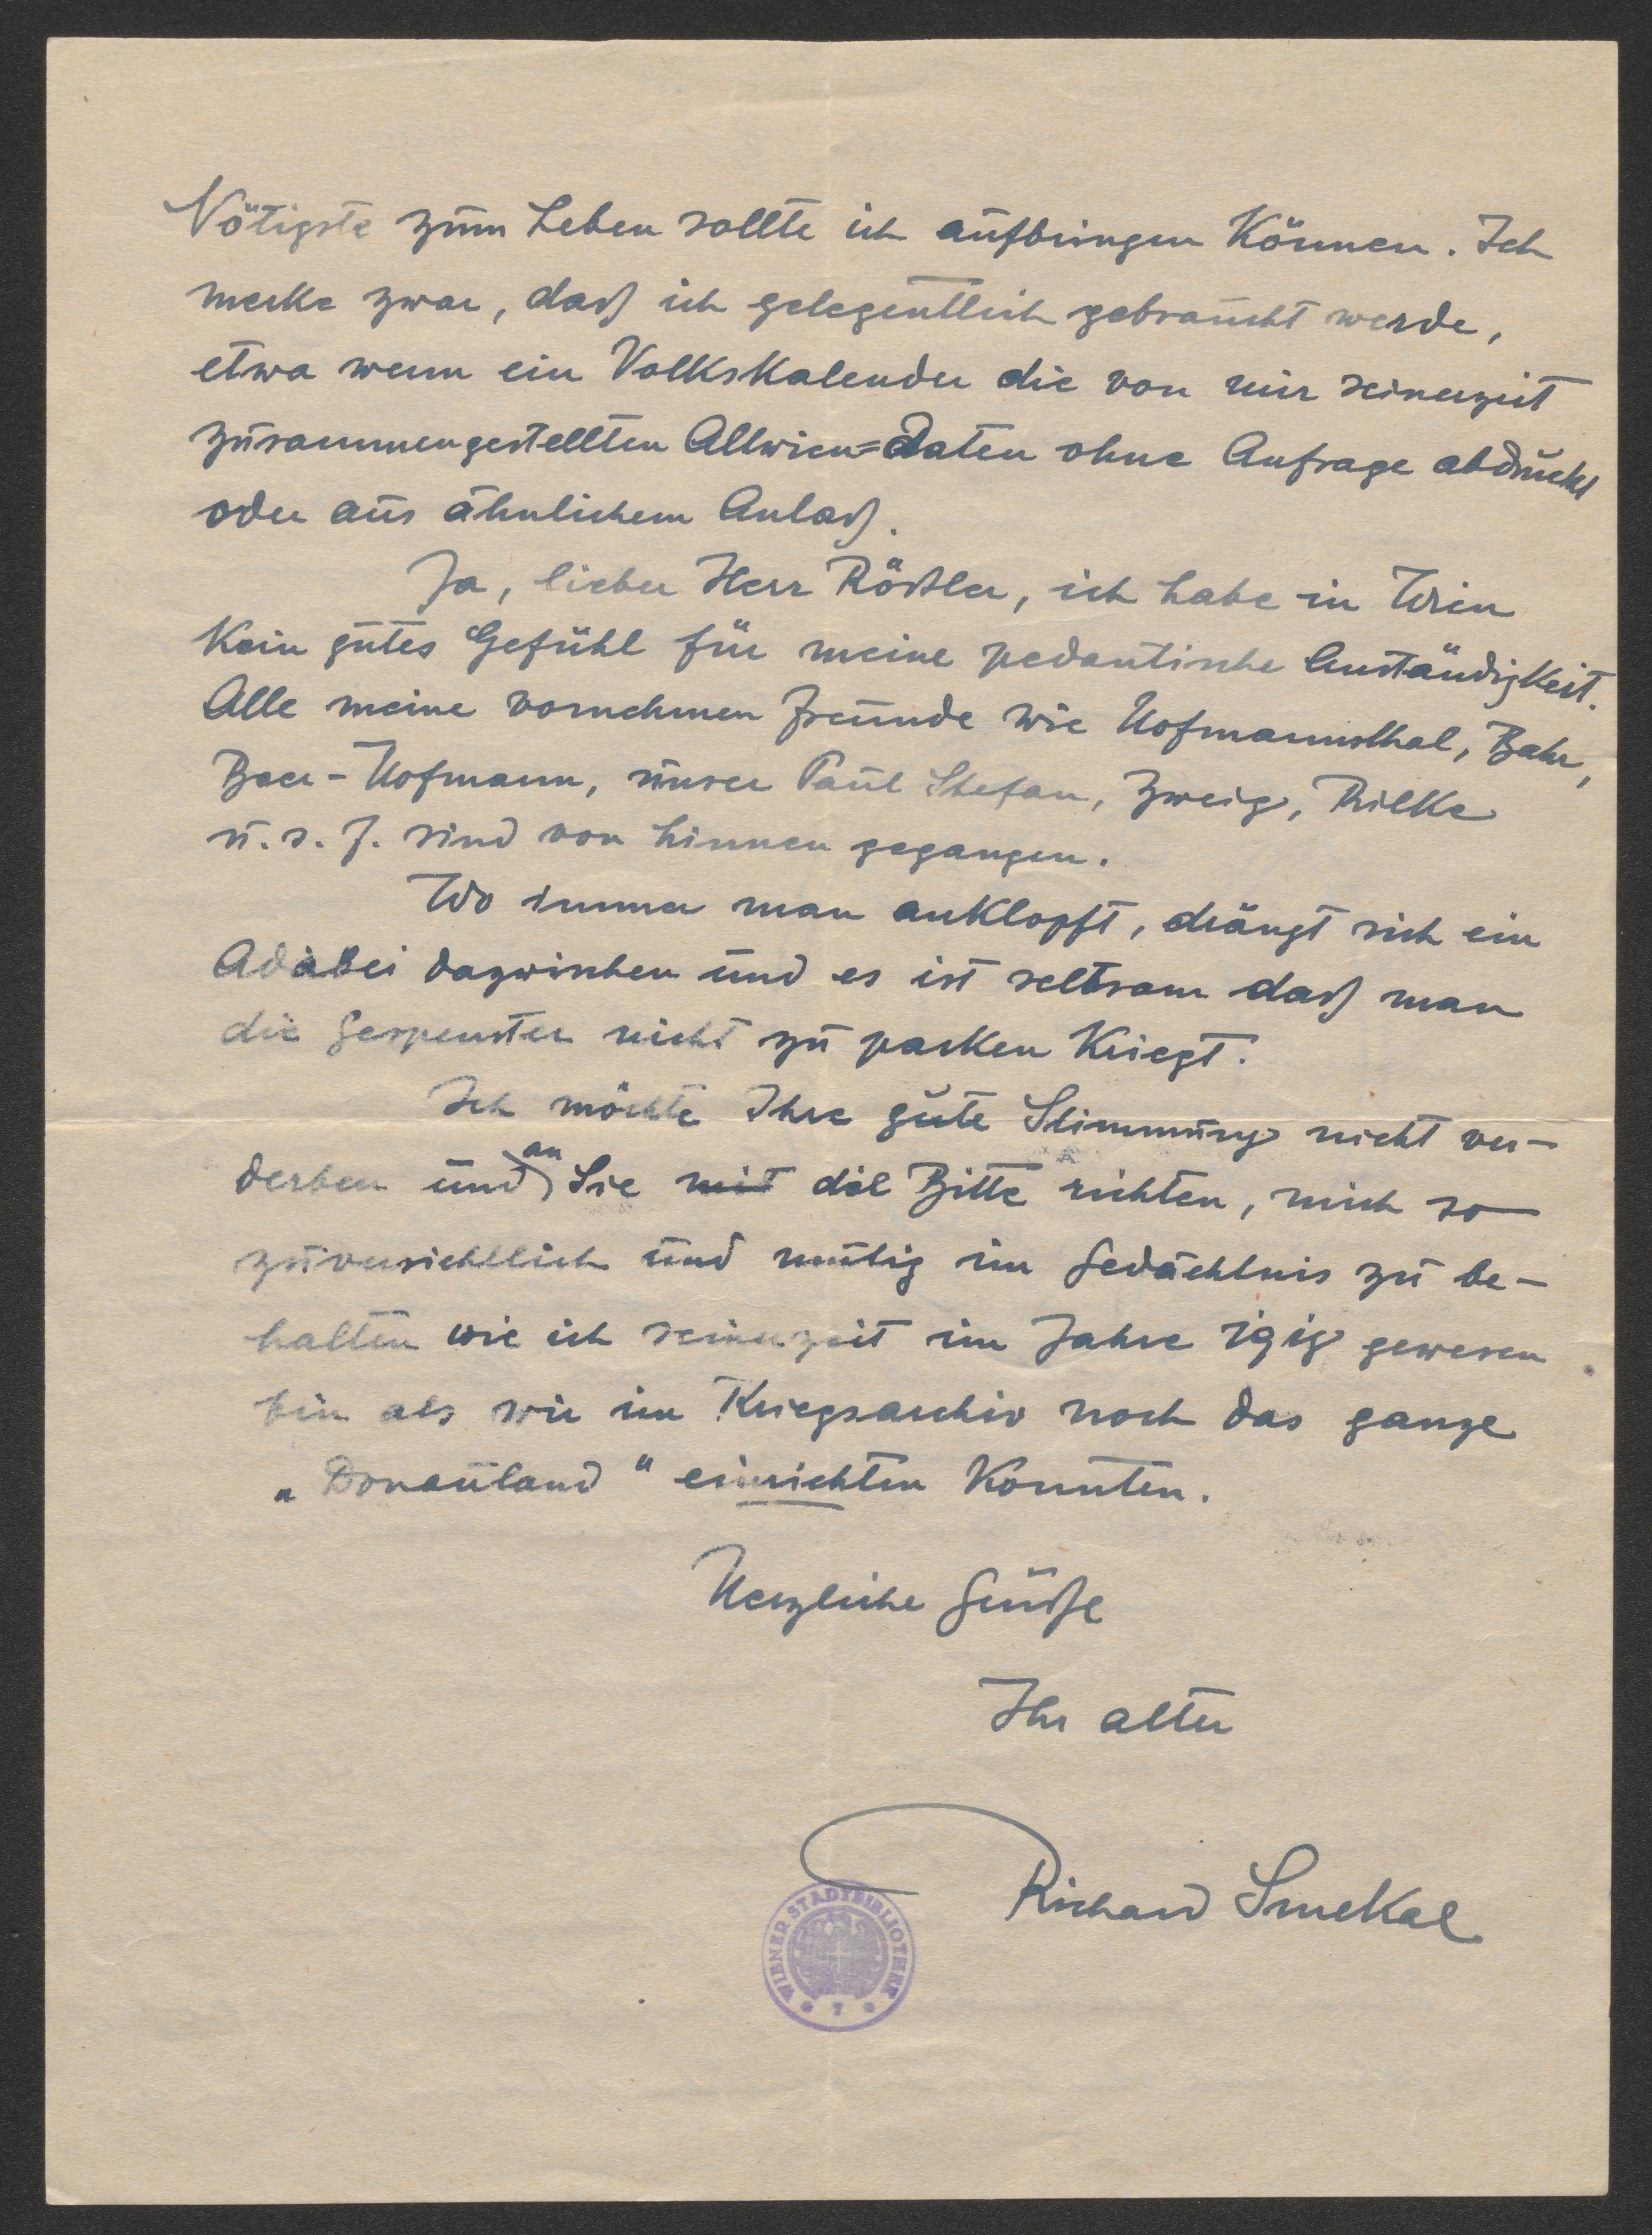 Nötigste zum Leben sollte ich aufbringen können. Ich
merke zwar, daß ich gelegentlich gebraucht werde,
etwa wenn ein Volkskalender die von mir seinerzeit
zusammengestellten Altwien=Daten ohne Anfrage abdruckt
oder aus ähnlichem Anlaß.
Ja, lieber Herr Rößler, ich habe in Wien
kein gutes Gefühl für meine pedantische Anständigkeit.
Alle meine vornehmen Freunde wie Hofmannsthal, Bahr,
Beer-Hofmann, unser Paul Stefan, Zweig, Rilke
u. s. f. sind von hinnen gegangen.
Wo immer man anklopft, drängt sich ein
Adabei dazwischen und es ist seltsam daß man
die Gespenster nicht zu packen kriegt.
Ich möchte Ihre gute Stimmung nicht ver-
derben und an Sie mit die Bitte richten, mich so
zuversichtlich und mutig im Gedächtnis zu be-
halten wie ich seinerzeit im Jahre 1919 gewesen
bin als wir im Kriegsarchiv noch das ganze
„Donauland" einrichten konnten.
Herzliche Grüße
Ihr alter
Richard Smekal
WIENER STADTBIBLIOTHEK
* 7 *